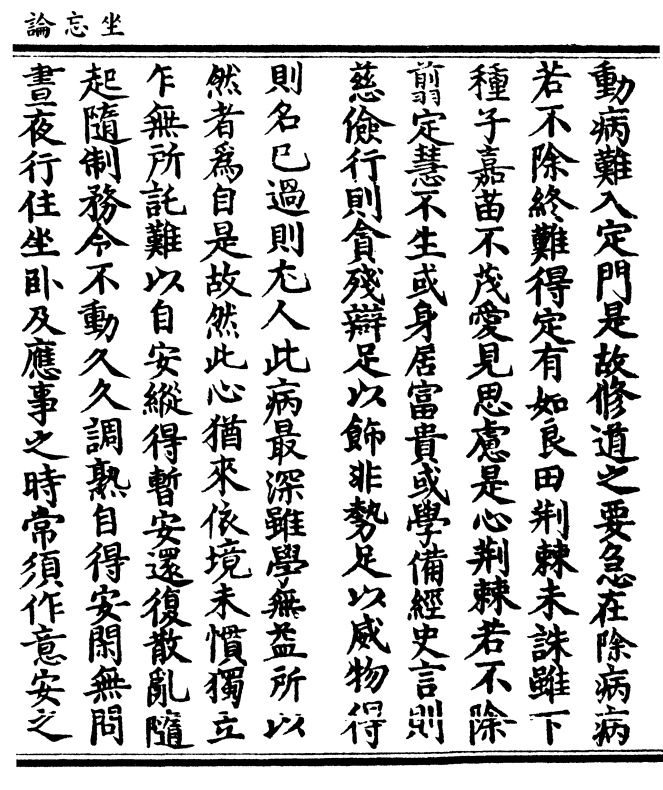 坐忘論
動病難入定門是故修道之要急在除病病
若不除終難得定有如良田荆棘未誅雖下
種子嘉苗不茂愛見思慮是心荆棘若不除
翦定慧不生或身居富貴或學備經史言則
慈儉行則貪殘辯足以飾非勢足以威物得
則名已過則尤人此病最深雖學無益所以
然者爲自是故然此心猶來依境未慣獨立
乍無所託難以自安縱得暫安還復散亂隨
起隨制務令不動久久調熟自得安閑無問
晝夜行住坐卧及應事之時常須作意安之